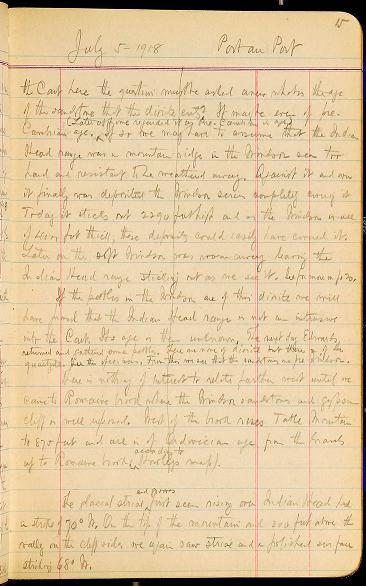 15
July 5 - 1918 Port au Port
the Cart here the question must be asked anew what is the age
of the sandstone that the diorite cuts? It may be even of pre-
Later Edw. regarded it as Pre-Cambrian in age
Cambrian age. If so we may have to assume that the Indian
Head range was a mountain ridge in the Windson sea too
hard and resistant to be weathered away. Against it and over
it finally was deposited the Windson series completely covering it
Today it sticks out 2290 feet high and as the Windson is
feet thick, these deposits could easily have covered it.
Later on the soft Windson was worn away leaving the
Indian Head range sticking out as we see it. See p.
If the pebbles in the Windson are of this diorite we will
have proved that the Indian Head range is not an intrusive
into the Carb. Its age is then unknown. The next day Edwards
returned and gathered some pebbles. There are none of diorite but there are of the
quartzite. See the specimens. From this we see that the sandstones are pre Windson.
There is nothing of interest to relate farther west until we
came to Romaine brook where the Windson sandstones and gypsum
cliff is well exposed. West of the brook rises Table Mountain
to 870 feet and all is of Ordovician age from the Gravels
up to Romaine brook (according to Howleys map).
The glacial striae and grooves first seen rising over Indian Head had
a strike of 70° W. On the top of the mountain and 200 feet above the
valley on the cliff sides we again saw striae and a polished surface
striking 68° W.